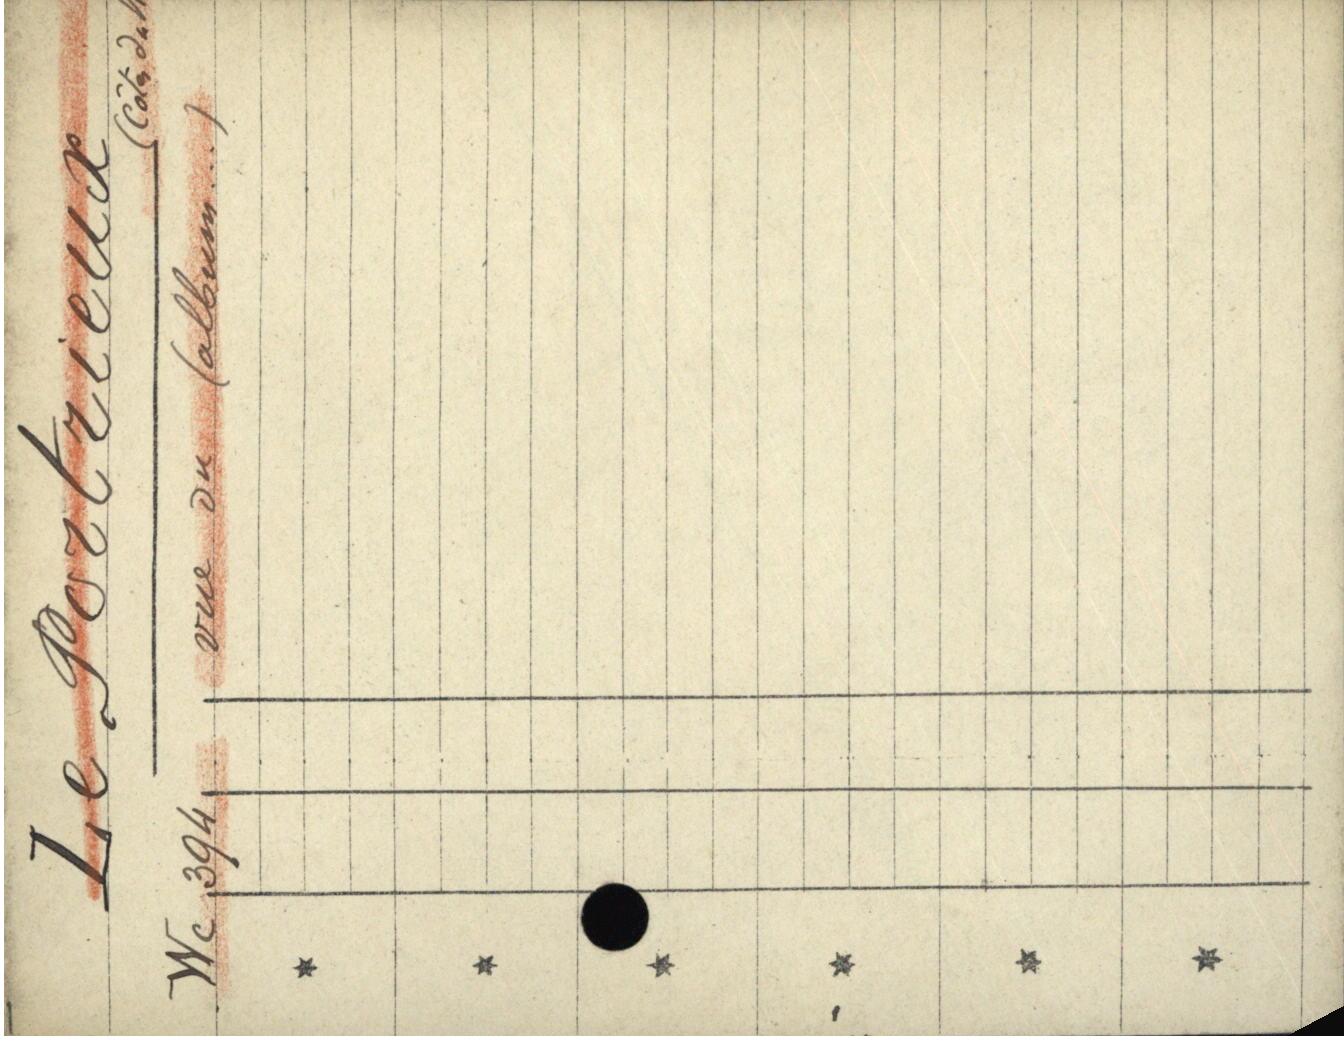 Le Portrieux
(Côtes du N
Wc 394 vue du (album...)